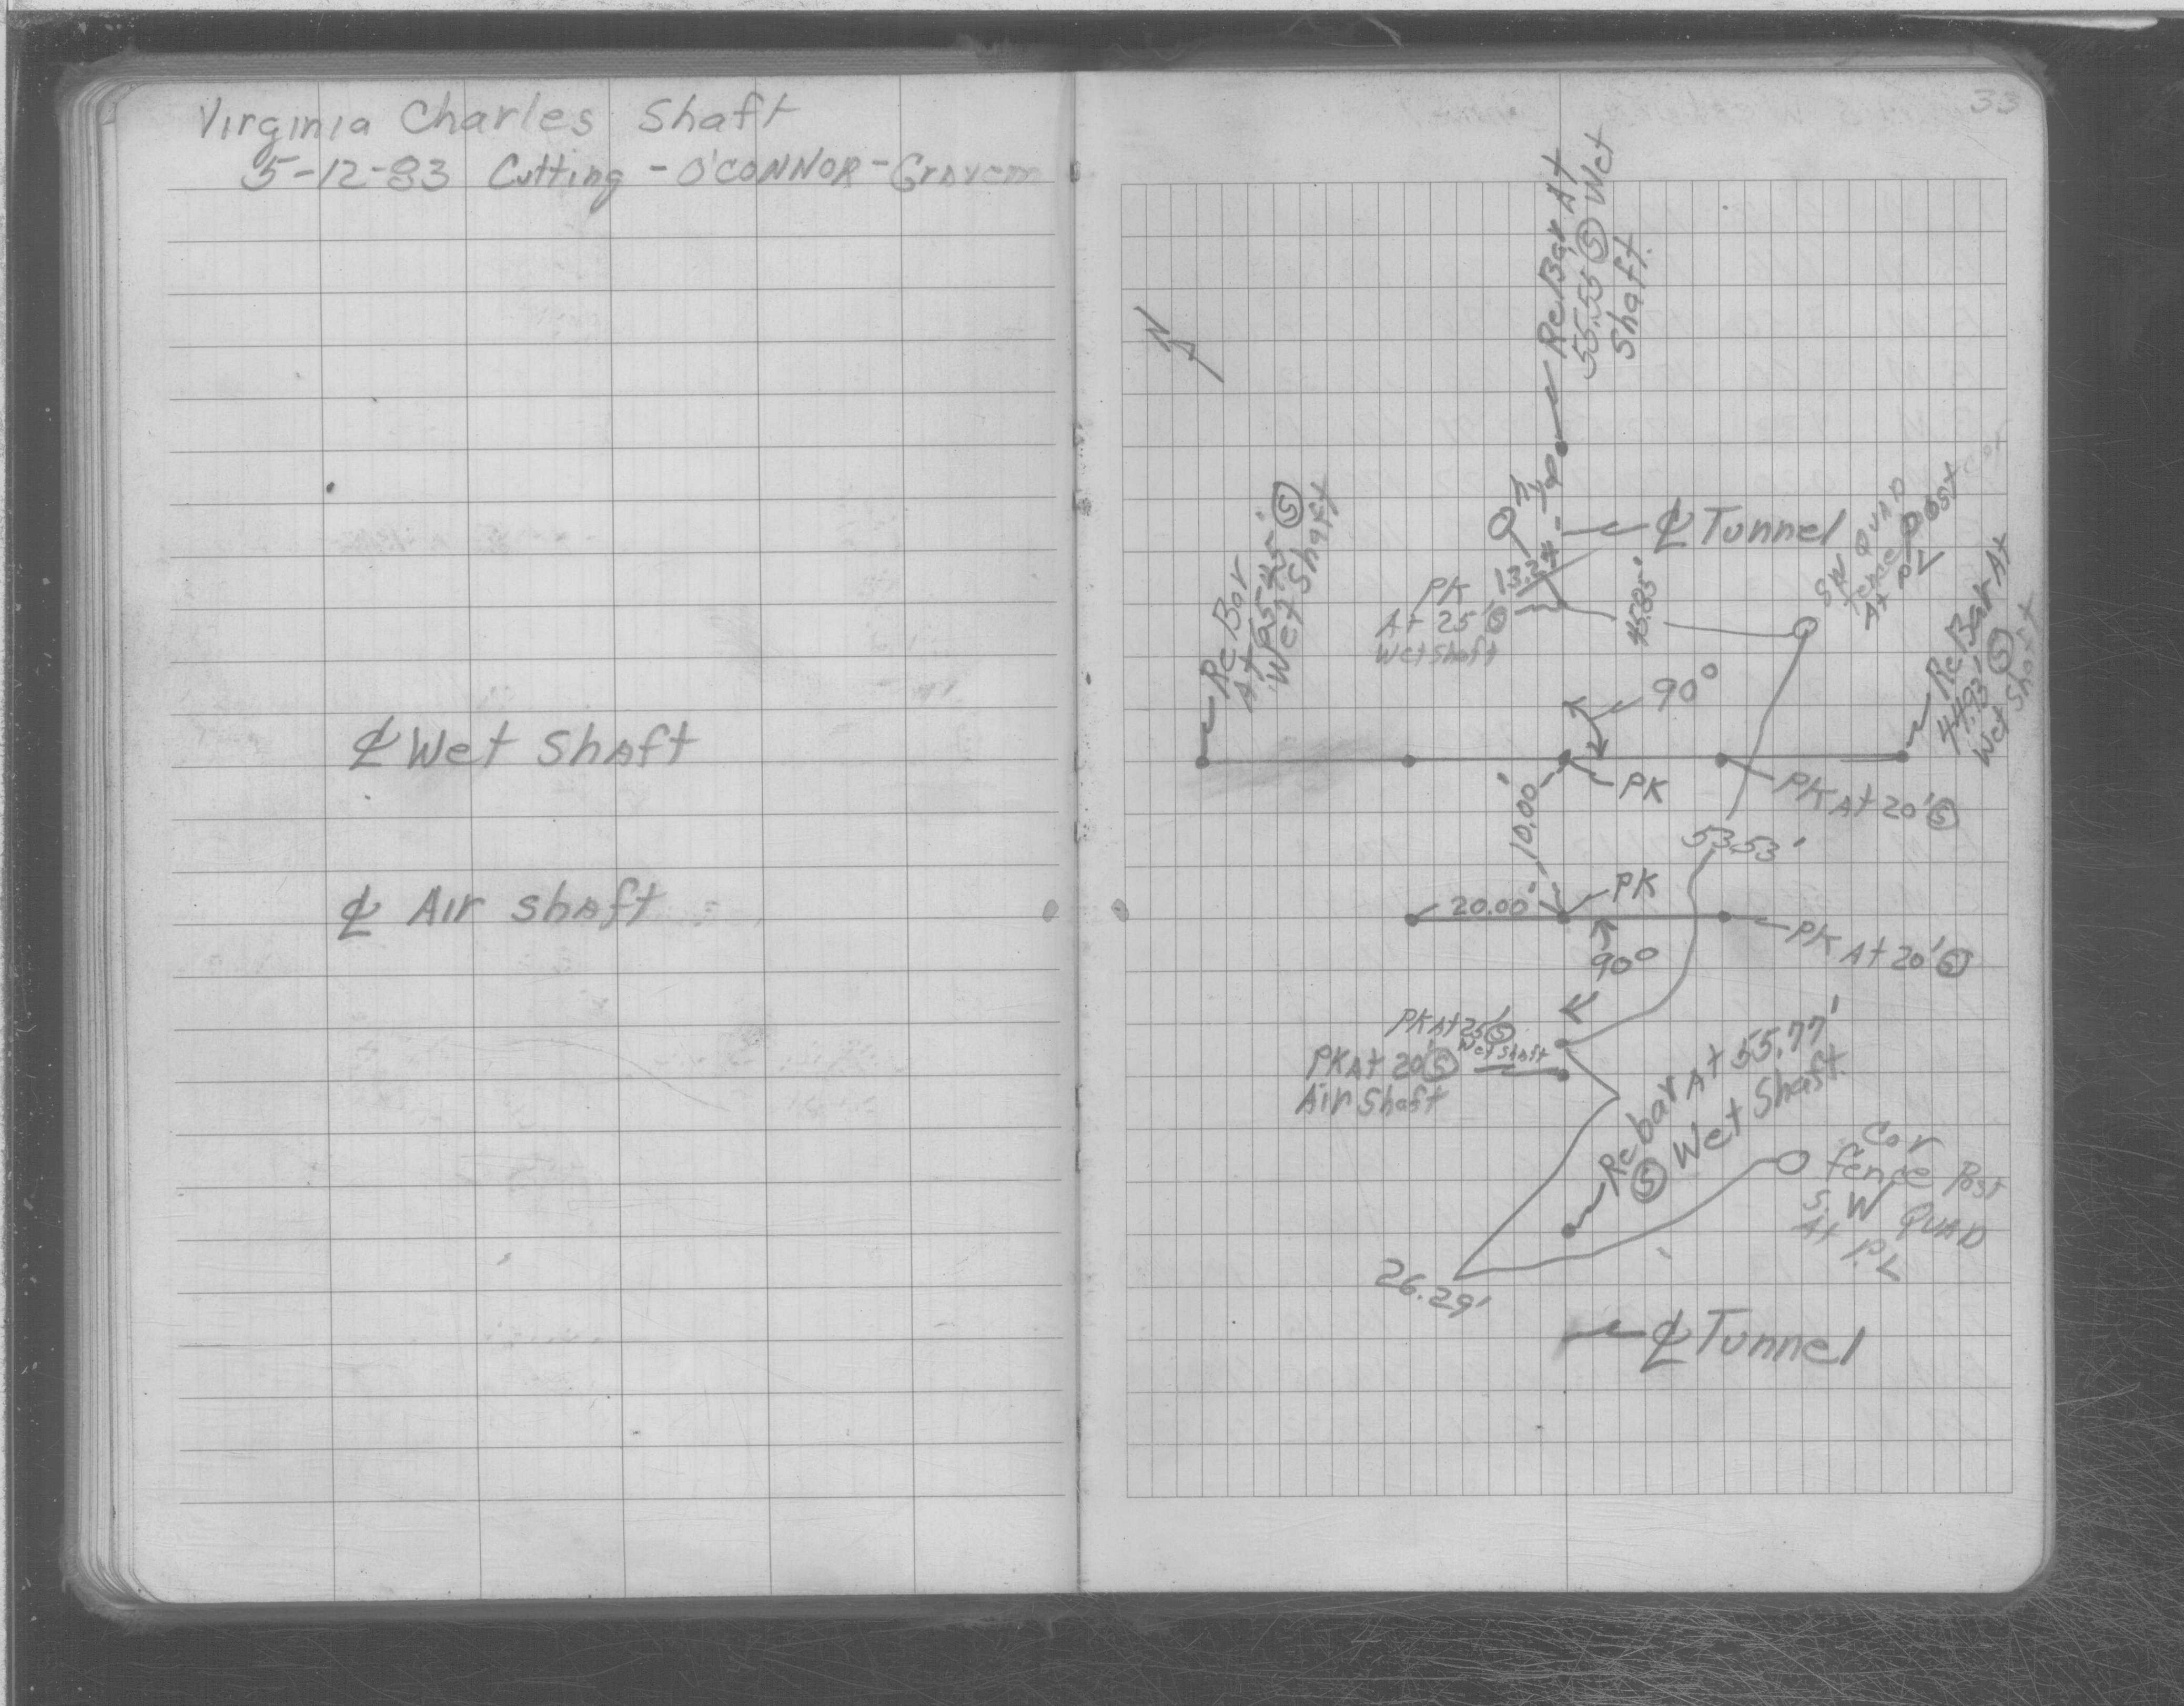 Virginia Charles Shaft
5-12-83 Cutting - O'CONNOR -
℄ Wet Shaft
℄ Air shaft
33
N
Re.Bar At
55.55 Ⓢ Wet
Shaft.
℄ Tunnel
13.24
PK
At 25' Ⓢ
Wet Shaft
45.85'
SW QUAD
fence post cor
At PL
Re Bar
Wet Shaft
Re.Bar At
44.93' Ⓢ
Wet Shaft
90°
PK
PK At 20' Ⓢ
10.00'
53.53'
20.00'
PK
PK At 20' Ⓢ
90°
PK At 25' Ⓢ
Wet Shaft
PK At 20' Ⓢ
Air Shaft
Rebar At 55.77'
Ⓢ Wet Shaft.
Cor
fence Post
S. W QUAD
At P.L
26.29'
℄ Tunnel